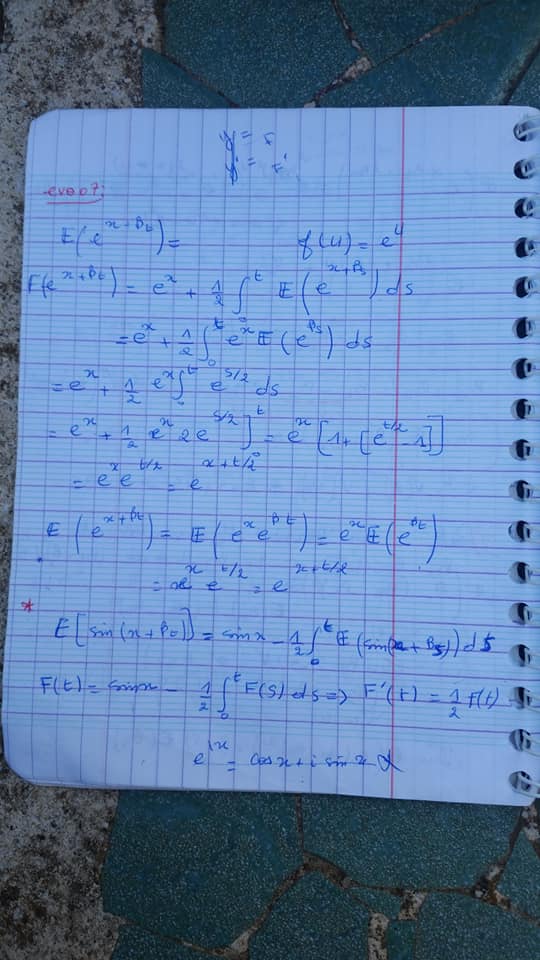 y = F
y' = F'
exo 07:
E(e^{x+B_t}) = f(u) = e^u
E(e^{x+B_t}) = e^x + 1/2 ∫_0^t E(e^{x+B_s}) ds
= e^x + 1/2 ∫_0^t e^x E(e^{B_s}) ds
= e^x + 1/2 e^x ∫_0^t e^{s/2} ds
= e^x + 1/2 e^x 2e^{s/2}]_0^t = e^x [1 + [e^{t/2} - 1]]
= e^x e^{t/2} = e^{x+t/2}
E(e^{x+B_t}) = E(e^x e^{B_t}) = e^x E(e^{B_t})
= e^x e^{t/2} = e^{x+t/2}
* E[sin(x+B_t)] = sin x - 1/2 ∫_0^t E(sin(x+B_s)) ds
F(t) = sin x - 1/2 ∫_0^t F(s) ds => F'(t) = 1/2 F(t)
e^{ix} = cos x + i sin x